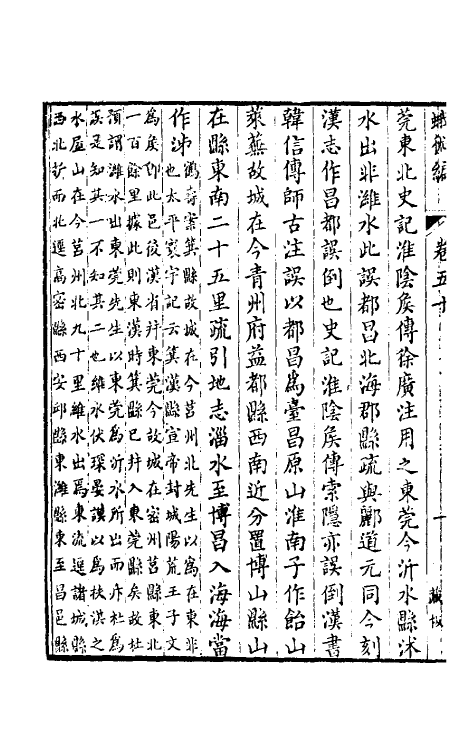 蛾術編　卷五十　一　藏板
莞東北史記淮陰矦傳徐廣注用之東莞今沂水縣沭
水出非濰水此誤都昌北海郡縣疏與酈道元同今刻
漢志作昌都誤倒也史記淮陰矦傳索隱亦誤倒漢書
韓信傳師古注誤以都昌爲臺昌原山淮南子作飴山
萊蕪故城在今青州府益都縣西南近分置博山縣山
在縣東南二十五里疏引地志淄水至博昌入海海當
作泲
鶴壽案箕縣故城在今莒州北先生以爲在東非
也太平寰宇記云箕漢縣宣帝封城陽荒王子文
爲矦卽此邑後漢省幷東莞今故城在密州莒縣東北
一百餘里據此則東漢時箕縣已幷入東莞縣矣故杜
預謂濰水出東莞先生以東莞爲沂水所出而斥杜爲
誤是知其一不知其二也維水伏琛晏謨以爲扶淇之
水屋山在今莒州北九十里維水出焉東流逕諸城縣
西北折而北逕高密縣西安邱縣東濰縣東至昌邑縣